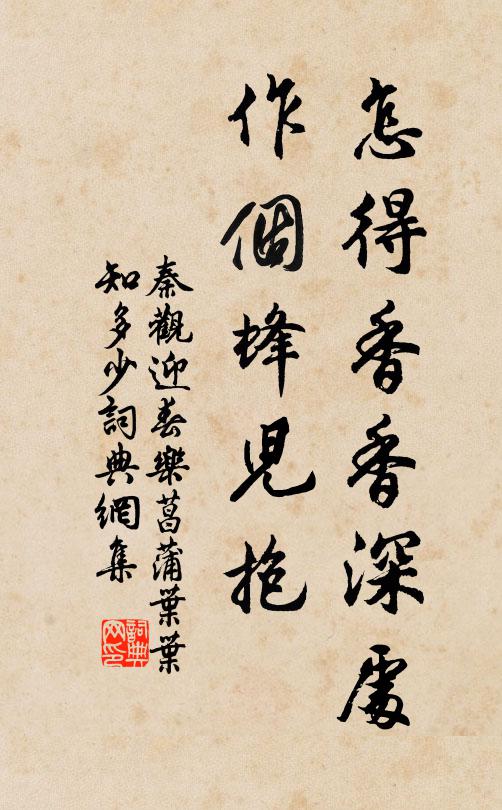 怎得香香深處
作個蜂兒抱
秦觀迎春樂菖蒲葉葉
知多少詞典網集
詞典網印